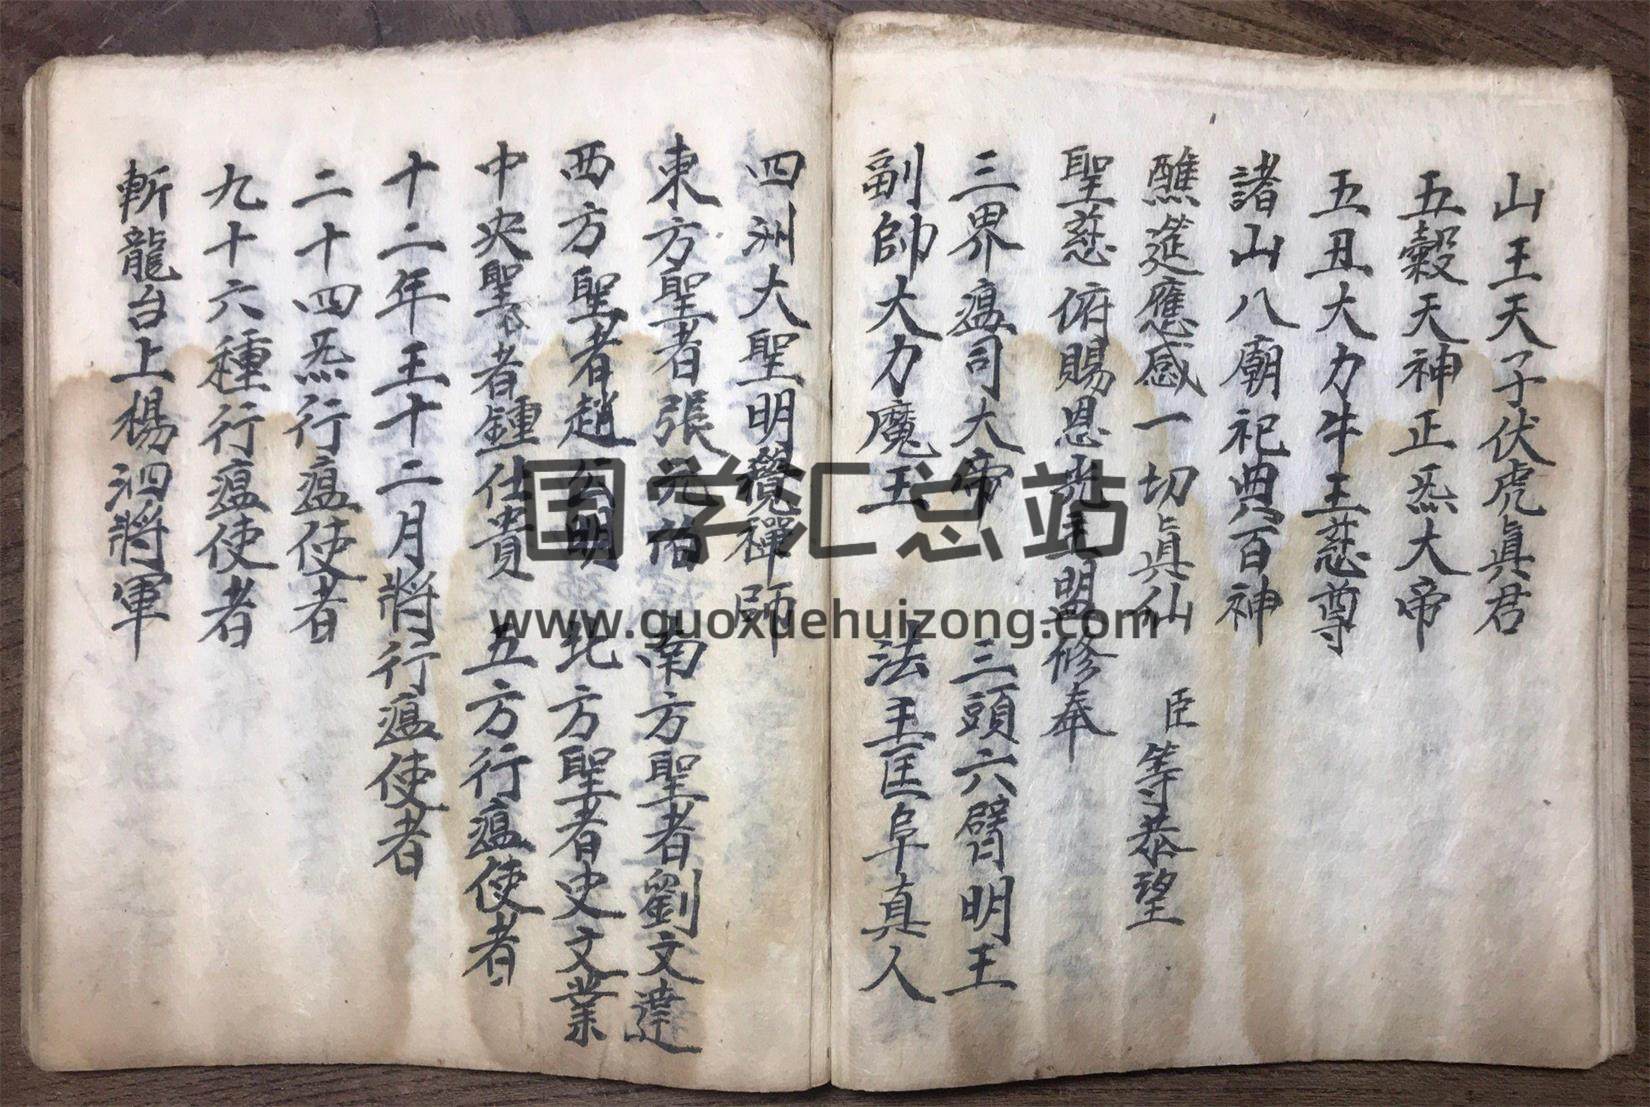 山王天子伏虎眞君
五穀天神正炁大帝
五丑大力牛王慈尊
諸山八廟祀典百神
醮筵應感一切眞仙 臣等恭望
聖慈俯賜恩光主盟修奉
三界瘟司大帝 三頭六臂明王
副帥大力魔王 法王匡阜真人
四洲大聖明覺禪師
東方聖者張元伯 南方聖者劉文達
西方聖者趙公明 北方聖者史文業
中央聖者鍾仕貴 五方行瘟使者
十二年王十二月將行瘟使者
二十四炁行瘟使者
九十六種行瘟使者
斬龍台上楊泗將軍
国学汇总站
www.guoxuehuizong.com